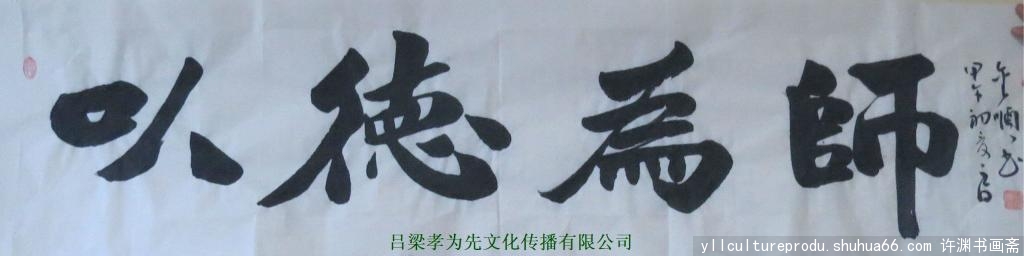 以德為師
甲午初夏
吕梁孝为先文化传播有限公司
yllcultureprodu.shuhua66.com 许渊书画斋